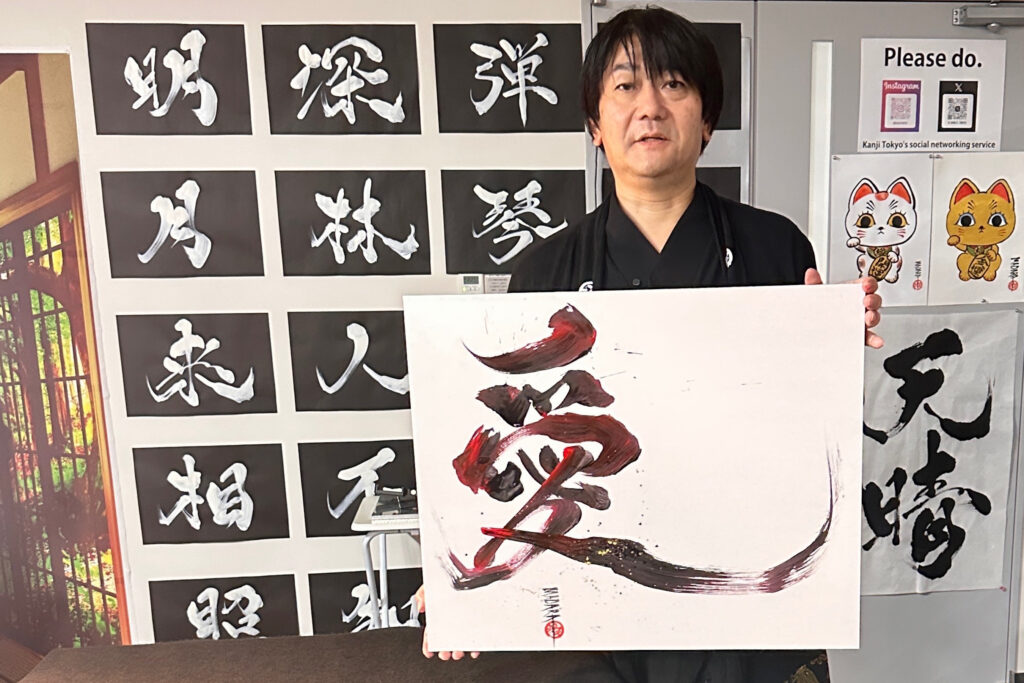 弾琴
深林人不知
明月来相照
愛
Please do.
Instagram
X
Kanji Tokyo's social networking service
天晴